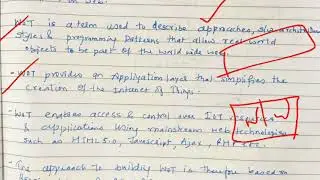 WoT is a term used to describe approaches, s/w architectural
styles & programming patterns that allow real world
objects to be part of the world wide web.
- WoT provides an Application layer that simplifies the
creation of the Internet of Things.
- WoT enables access & control over IoT resources
& applications using mainstream web technologies
such as HTML 5.0, Javascript, Ajax, PHP etc.
- The approach to building WoT is therefore based on
N/W